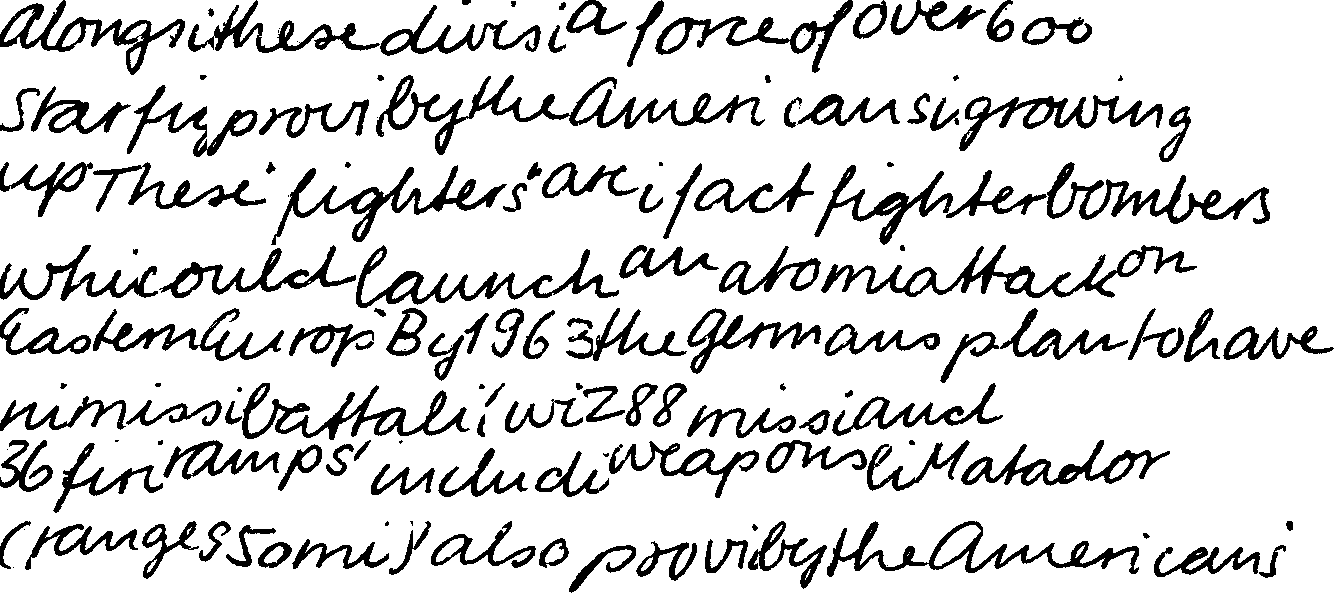 Alongsithese divisi a force of over 600
Starfig provi by the Americans i growing
up. These "fighters" are i fact fighter bombers
whi could launch an atomi attack on
Eastern Europ. By 1963 the Germans plan to have
ni missi battali, wi 288 missi and
36 firi ramps, includi weapons li Matador
(ranges 550 mi), also provi by the Americans.